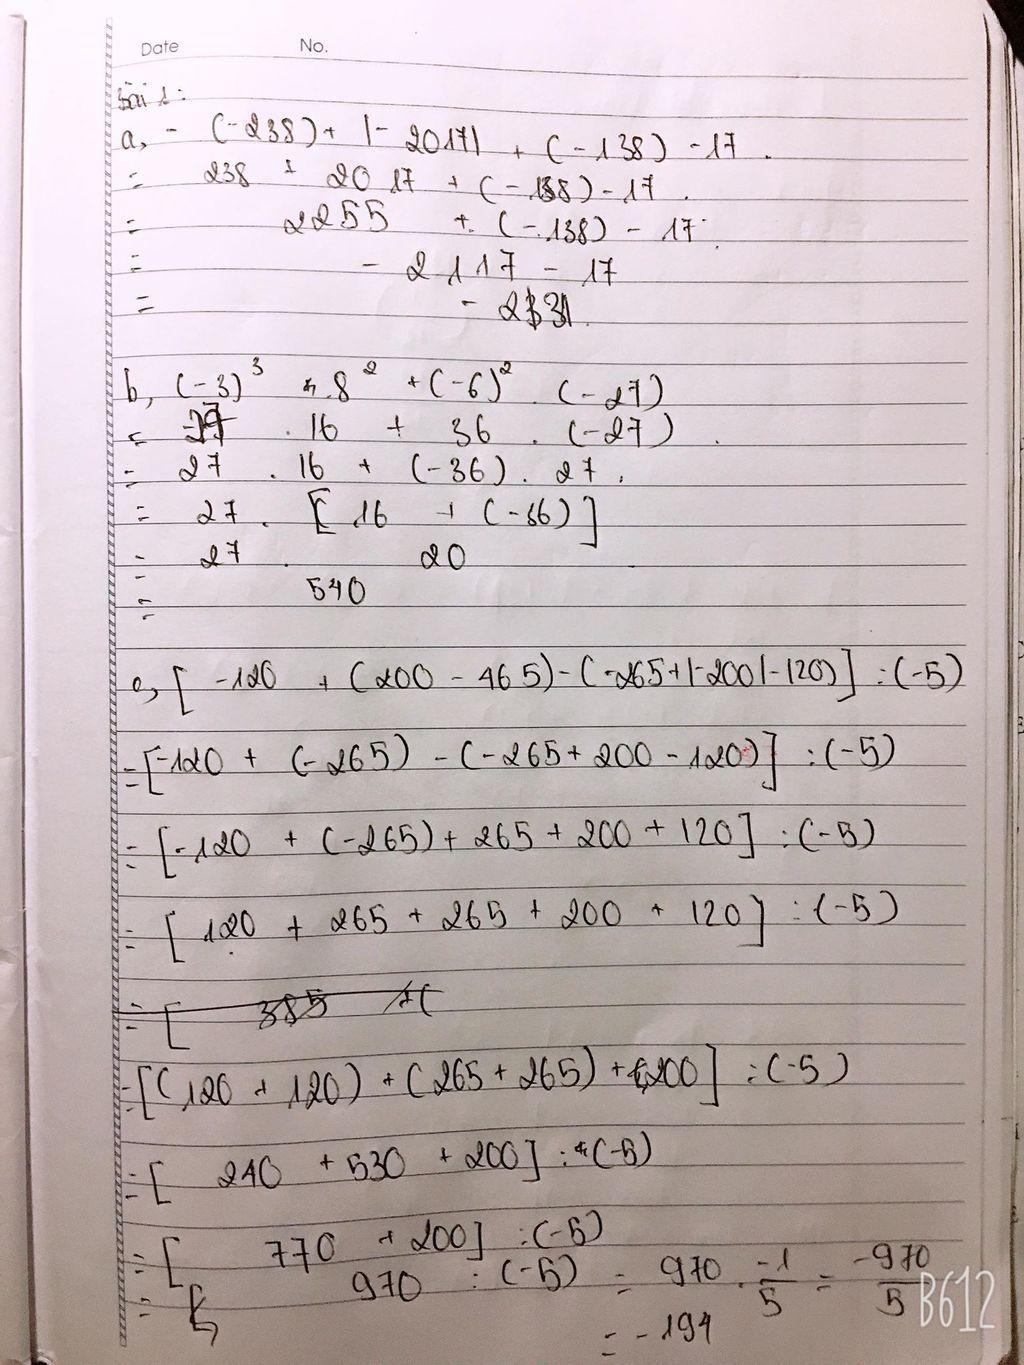 Date No.
Bài 1:
a, - (-238) + |-2017| + (-138) - 17.
= 238 + 2017 + (-138) - 17.
= 2255 + (-138) - 17.
= - 2117 - 17
= - 2131.
b, (-3)³ . 8² + (-6)² . (-27)
= . 16 + 36 . (-27).
= 27 . 16 + (-36) . 27.
= 27 . [16 + (-36)]
= 27 . 20
= 540
c, [-120 + (200 - 465) - (-265 + |-200| - 120)] : (-5)
= [-120 + (-265) - (-265 + 200 - 120)] : (-5)
= [-120 + (-265) + 265 + 200 + 120] : (-5)
= [120 + 265 + 265 + 200 + 120] : (-5)
= [ 385 + (
= [(120 + 120) + (265 + 265) + 200] : (-5)
= [240 + 530 + 200] : (-5)
= [770 + 200] : (-5)
= 970 : (-5) = 970 . -1/5 = -970/5
= -194
B612